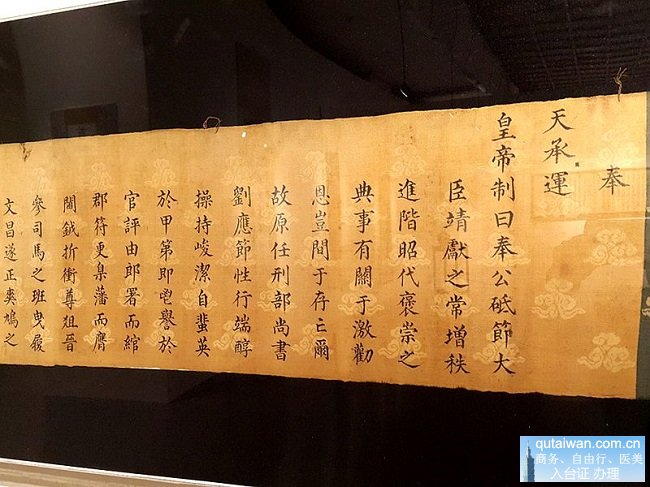 奉
天承運
皇帝制曰奉公砥節大
臣靖獻之常增秩
進階昭代褒崇之
典事有關于激勸
恩豈間于存亡爾
故原任刑部尚書
劉應節性行端醇
操持峻潔自蜚英
於甲第即鬯譽於
官評由郎署而綰
郡符更臬藩而膺
閫鉞折衝尊俎晉
參司馬之班曳履
文昌遂正爽鳩之
qutaiwan.com.cn
商务、自由行、医美
入台证 办理